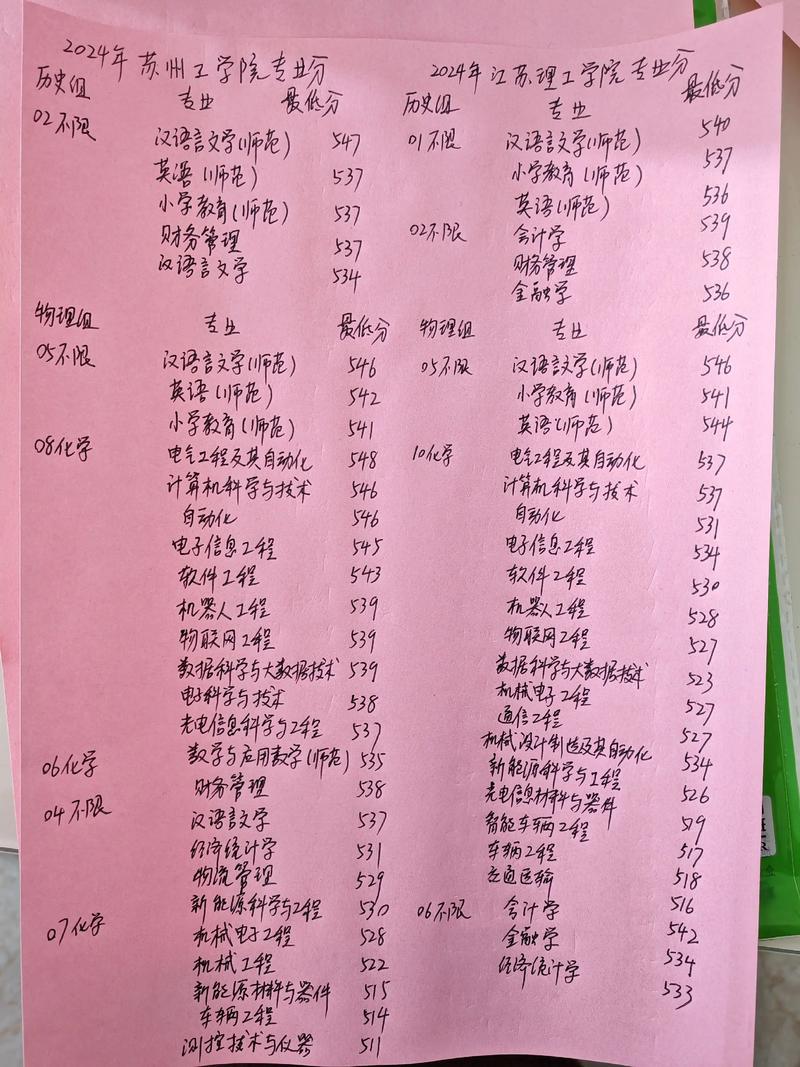 2024年 苏州工学院专业分
历史组 专业 最低分
02不限 汉语言文学(师范) 547
英语(师范) 537
小学教育(师范) 537
财务管理 537
汉语言文学 534
物理组 专业 最低分
05不限 汉语言文学(师范) 546
英语(师范) 542
小学教育(师范) 541
08化学 电气工程及其自动化 548
计算机科学与技术 546
自动化 546
电子信息工程 545
软件工程 543
机器人工程 539
物联网工程 539
数据科学与大数据技术 539
电子科学与技术 538
光电信息科学与工程 537
数学与应用数学(师范) 535
06化学 财务管理 538
04不限 汉语言文学 537
经济统计学 531
物流管理 529
新能源科学与工程 530
07化学 机械电子工程 528
机械工程 522
新能源材料与器件 515
车辆工程 514
测控技术与仪器 511
2024年江苏理工学院专业分
历史组 专业 最低分
01不限 汉语言文学(师范) 540
小学教育(师范) 537
英语(师范) 536
02不限 会计学 539
财务管理 538
金融学 536
物理组 专业 最低分
05不限 汉语言文学(师范) 546
小学教育(师范) 541
英语(师范) 544
10化学 电气工程及其自动化 537
计算机科学与技术 537
自动化 531
电子信息工程 534
软件工程 530
机器人工程 528
物联网工程 527
数据科学与大数据技术 523
机械电子工程 527
通信工程 527
机械设计制造及其自动化 534
新能源科学与工程 526
光电信息材料与器件 519
智能车辆工程 517
车辆工程 518
交通运输 516
06不限 会计学 542
金融学 534
经济统计学 533